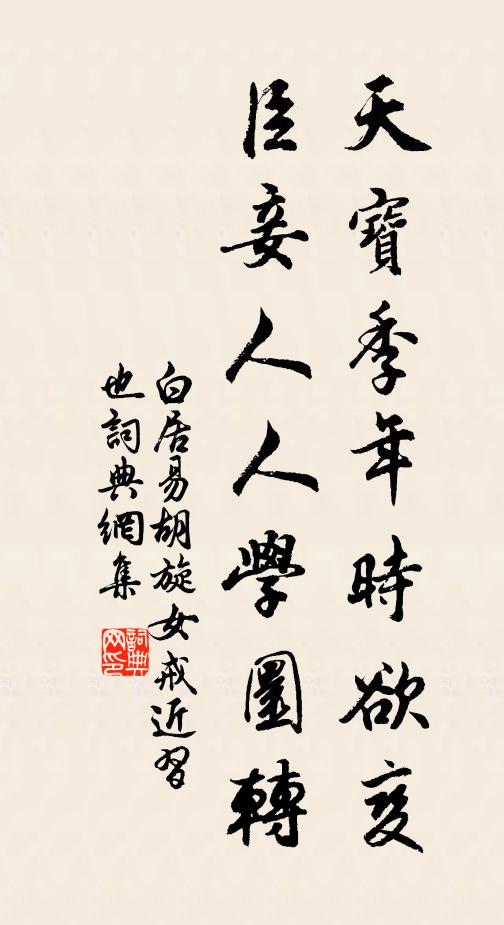 天寶季年時欲变
臣妾人人學圜轉
白居易胡旋女戒近習
也詞典網集
詞典网印